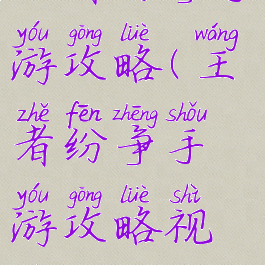 yóu gōng lüè wáng
游攻略(王
zhě fēn zhēng shǒu
者纷争手
yóu gōng lüè shì
游攻略视